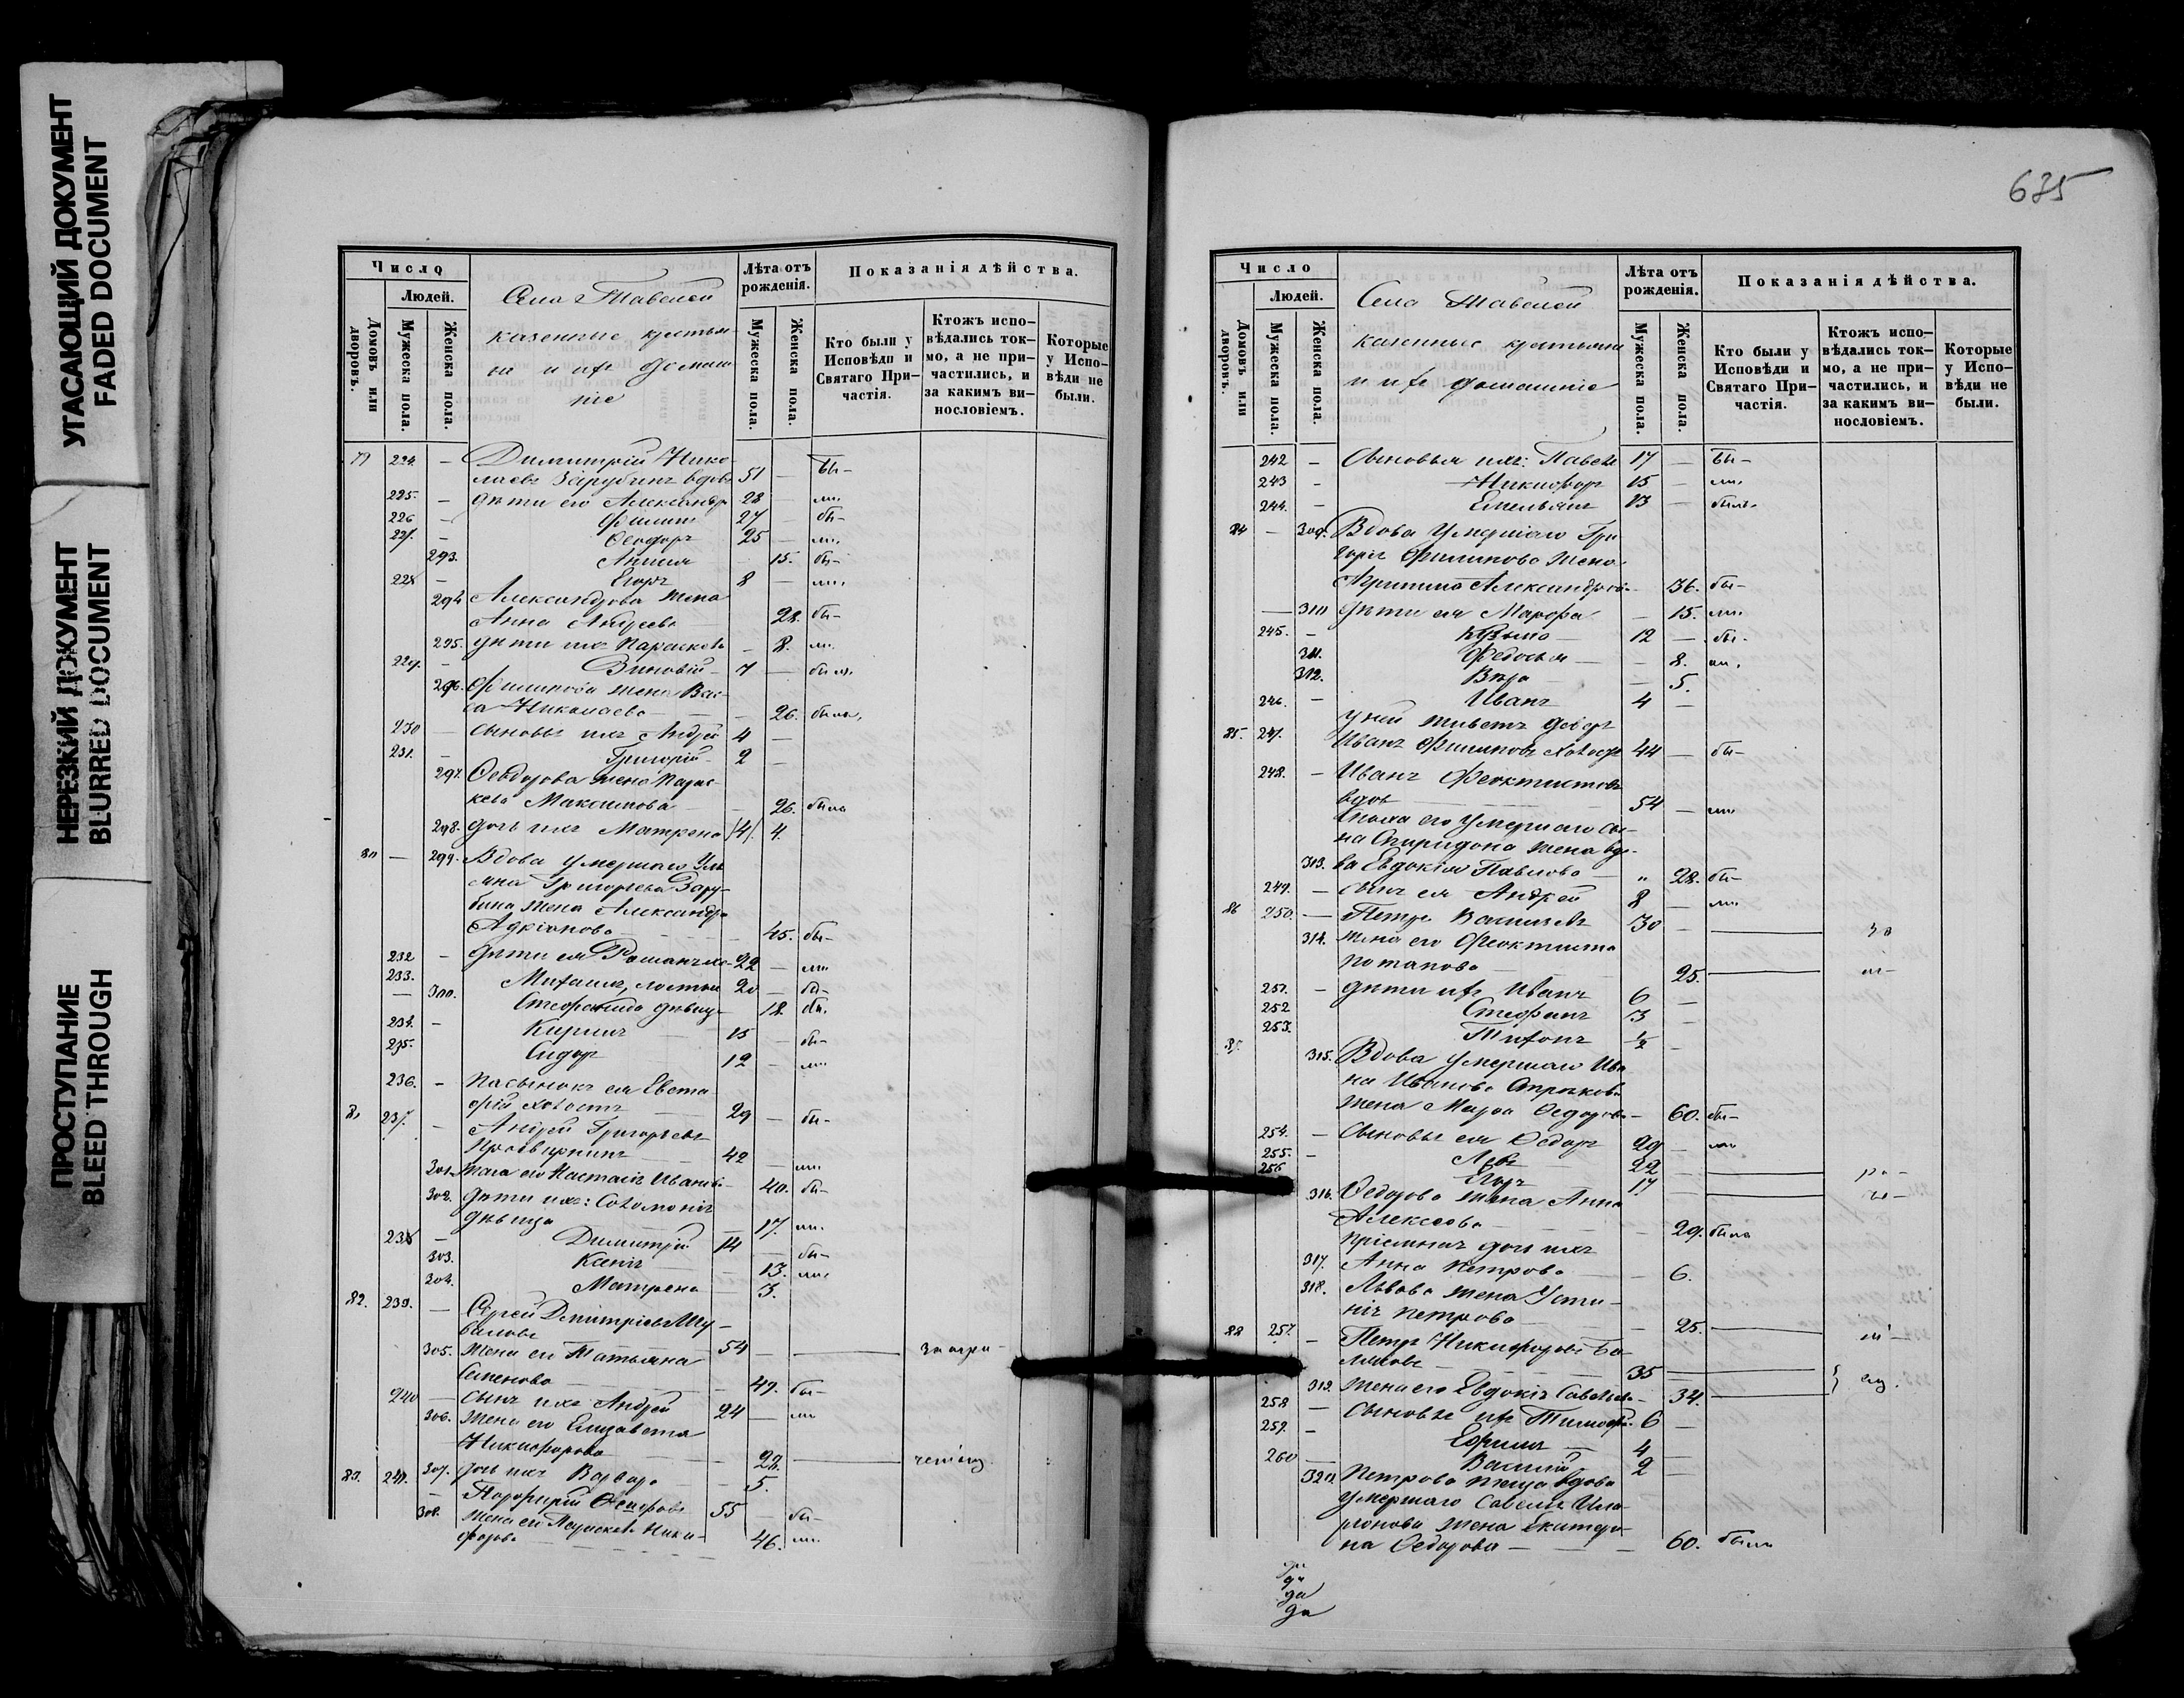 УГАСАЮЩИЙ ДОКУМЕНТ
FADED DOCUMENT
НЕРЕЗКИЙ ДОКУМЕНТ
BLURRED DOCUMENT
ПРОСТУПАНИЕ
BLEED THROUGH
Число
Людей.
Домовъ или дворовъ.
Мужеска пола.
Женска пола.
Села Тавелей
казенные крестья-
не и ихъ домаш
ніе
Лѣта отъ рожденія.
Мужеска пола.
Женска пола.
Показанія дѣйства.
Кто были у Исповѣди и Святаго При-частія.
Ктожъ испо-вѣдались ток-мо, а не при-частились, и за какимъ ви-нословіемъ.
Которые у Испо-вѣди не были.
79 224. — Димитрій Нико
лаевъ Зарубинъ вдовъ 51 — бы-
225. — дѣти его Александръ 28 — ли.
226 — Филипъ 27 — бы-
227. — Ѳеодоръ 25 — ли.
293. Анисья — 15. бы-
228 — Егоръ 8 — ли.
294 Александрова жена
Анна Андреева 28. бы-
295. дѣти ихъ Параскева — 8. ли.
229. — Зиновій 7 — были.
296. Филипова жена Вас-
са Николаева — 26. была.
230 — Сыновья ихъ Андрей 4 —
231. — Григорій 2 —
297. Ѳеодорова жена Парас-
кева Максимова — 26. была
298. дочь ихъ Матрена /4/. 4.
80 — 299. Вдова умершаго Уль
яна Григорьева Зару-
бина жена Александра
Адріанова — 45. бы-
232 — дѣти ея Романъ хо- 22 — ли
233. Михаилъ, холостъ 20 — бы-
— 300. Стефанида дѣвица — 18. бы.
234. — Кирилъ 15 — бы-
235. Сидоръ 12 — ли.
236. — Пасынокъ ея Евста
фій холостъ 29 — бы-
81 237. — Андрей Григорьевъ
42 — ли.
301. Жена его Настасія Иванова — 40. бы-
302. дѣти ихъ: Соломонія
дѣвица — 17. ли.
238 — Димитрій 14 — бы-
303. Ксенія — 13. ли.
304. Матрена — 3.
82. 239. — Сергей Димитріевъ Шу-
валовъ 54 —
305. Жена его Татьяна
Семенова — 49. бы-
240 — Сынъ ихъ Андрей 24 — ли
306. Жена его Елизавета
Никифорова — 22.
307. дочь ихъ Варвара — 5.
83. 241. — Порфирій Осиповъ 55 — бы-
308. Жена его Параскева Ники-
форова — 46. ли.
635
Число
Людей.
Домовъ или дворовъ.
Мужеска пола.
Женска пола.
Села Тавелей
казенные крестьяне
и ихъ домашніе
Лѣта отъ рожденія.
Мужеска пола.
Женска пола.
Показанія дѣйства.
Кто были у Исповѣди и Святаго При-частія.
Ктожъ испо-вѣдались ток-мо, а не при-частились, и за какимъ ви-нословіемъ.
Которые у Испо-вѣди не были.
242 — Сыновья ихъ: Павелъ 17 — бы-
243 — Никифоръ 15 — ли.
244. — Емельянъ 13 — былъ.
84 — 309. Вдова умершаго Гри
горія Филипова жена
Агрипина Александрова 36. бы-
— 310 дѣти ея Марфа — 15. ли.
245. — Кузьма 12 — бы.
311. Федосья — 8. ли.
312. Вѣра — 5.
246. — Иванъ 4 —
у ней живетъ
85. 247. Иванъ Филиповъ холостъ 44 — бы-
248. — Иванъ Феоктистовъ
вдовъ 54 — ли
Сноха его умершаго сы-
на Спиридона жена вдо-
313. ва Евдокія Павлова 28. бы-
249. — Сынъ ея Андрей 8 — ли
86 250. — Петръ Васильевъ 30 —
314. Жена его Феоктиста
Потапова 25.
251. — дѣти ихъ Иванъ 6 —
252 Стефанъ 3 —
253. Тихонъ ½ —
87. 315. Вдова умершаго Ива
на Иванова
жена Марѳа Ѳедорова — 60. бы-
254. — Сыновья ея Ѳедоръ 29 — ли
255. — Левъ 22 —
256 Егоръ 17 —
316. Ѳедорова жена Анна
Алексеева — 29. была
Пріемная дочь ихъ
317. Анна Петрова — 6.
318. Львова жена Усти-
нія Петрова — 25.
88 257. — Петръ Никифоровъ Бе
ляковъ 35
319. Жена его Евдокія Савельева — 34.
258 — Сыновья ихъ Тимофей 6 —
259. — Ефимъ 4 —
260 — Василій 2 —
320. Петрова теща вдова
умершаго Савелья Ила-
ріонова жена Екатери-
на Ѳедорова — 60. была